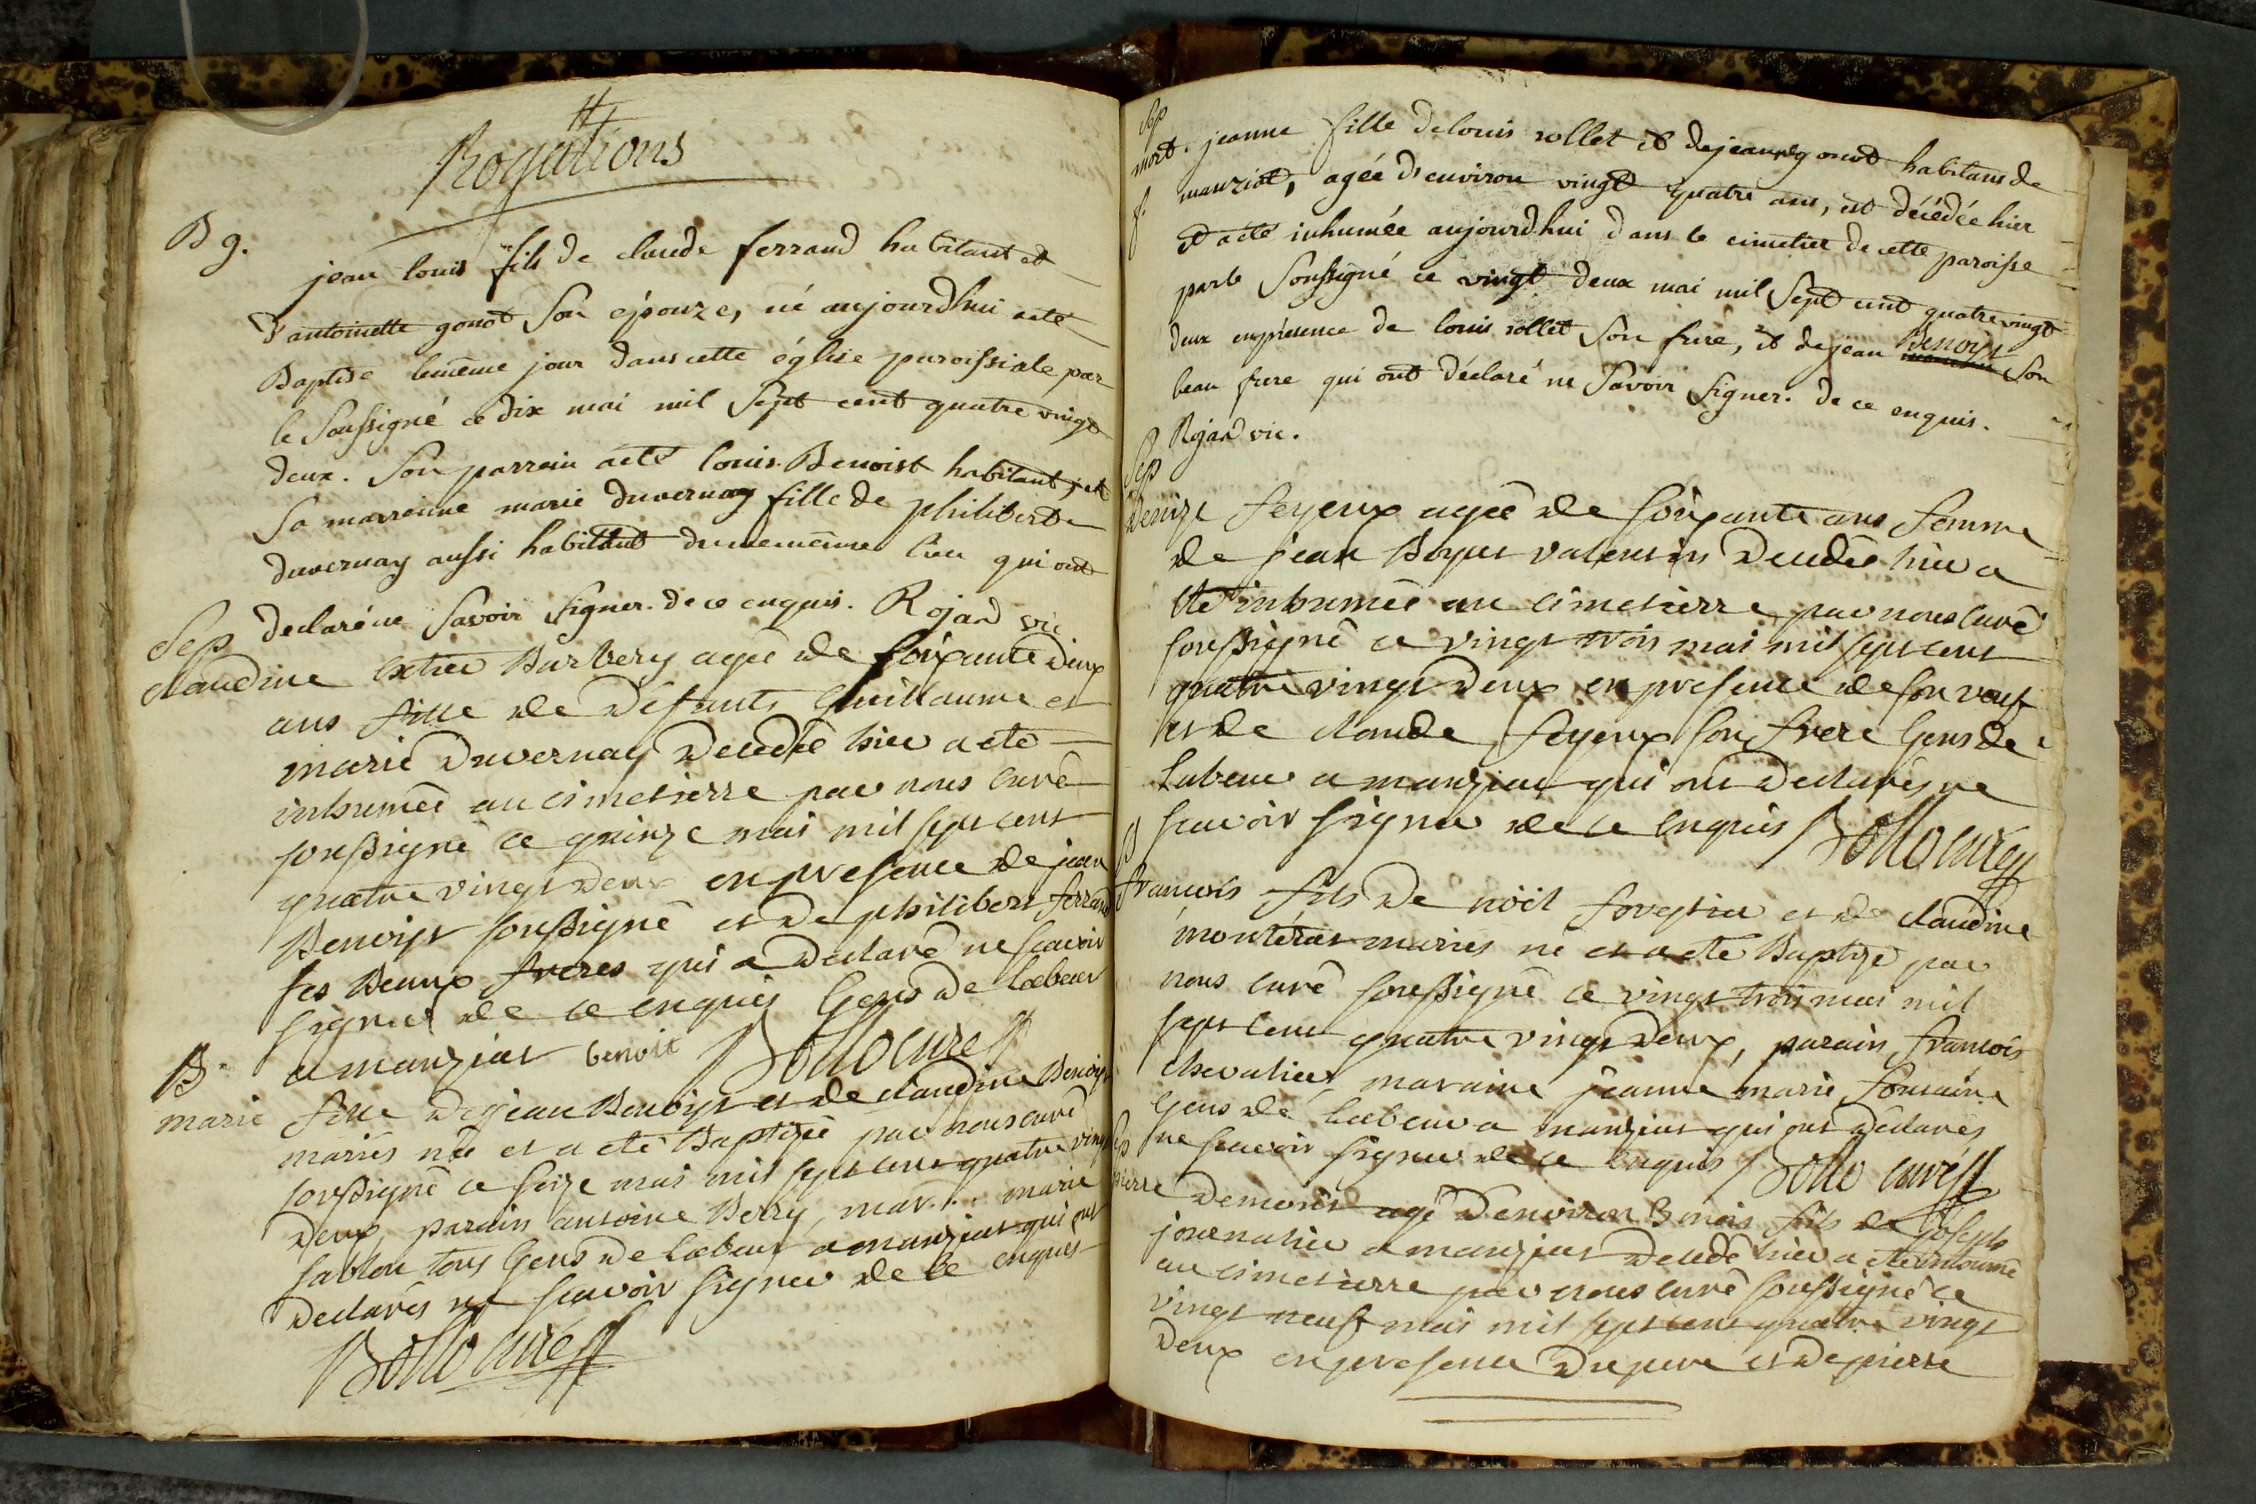 Rogations
B g.
jean louis fils de claude ferrand habitant et
d'antoinette gonot son épouze, né aujourdhui a eté
Baptisé le même jour dans cette église paroissiale par
le soussigné ce dix mai mil sept cent quatre vingt
deux. Son parrain a eté louis Benoist habitant, et
sa marreinne marie duvernay fille de philibert
duvernay aussi habitant du même lieu qui ont
declaré ne savoir signer. de ce enquis. Rojard vic
Sep
claudine Burbery agée de soixante deux
ans fille de defunts Guillaume et
marie Duvernay Decedée hier a eté
inhumée au cimetierre par nous curé
soussigné ce quinze mai mil sept cent
quatre vingt deux en presence de jean
Benoist soussigné et de philibert ferrand
ses Beaux freres qui a Declaré ne scavoir
signer de ce enquis Gens de labeur
a manziat benoit Bollo curé
B.
marie fille de jean Benoist et de claudine Benoist
mariés née et a eté Baptisée par nous curé
soussigné ce seize mai mil sept cent quatre vingt
Deux, parain antoine Berry, mar. marie
sablon tous Gens de labeur a manziat qui ont
Declarés ne scavoir signer de ce enquis
Bollo curé
Sep
mort. jeanne fille de louis rollet et de jeanne gonod habitans de
f. manziat, agée d'environ vingt quatre ans, est décédée hier
et a eté inhumée aujourdhui dans le cimetier de cette paroisse
par le soussigné ce vingt deux mai mil sept cent quatre vingt
deux en présence de louis rollet son frere, et de jean Benoist son
beau frere qui ont déclaré ne savoir signer. de ce enquis.
Rojard vic.
Sep
Denize feyeux agée de soixante ans femme
de jean Boyer valentin Decedée hier a
eté inhumée au cimetierre par nous curé
soussigné ce vingt trois mai mil sept cent
quatre vingt Deux en presence de son veuf
et de claude feyeux son frere Gens de
labeur a manziat qui ont Declarés ne
scavoir signer de ce enquis Bollo curé
B
francois fils de noël forestier et de claudine
montérat mariés né et a eté Baptizé par
nous curé soussigné ce vingt trois mai mil
sept cent quatre vingt Deux, parain francois
chevalier, maraine jeanne marie fontaine
Gens de labeur a manziat qui ont Déclarés
ne scavoir signer de ce enquis Bollo curé
Sep
pierre Demorêt agé D'environ 3 mois fils de joseph
journalier a manziat Decedé hier a eté inhumé
au cimetierre par nous curé soussigné ce
vingt neuf mai mil sept cent quatre vingt
Deux en presence du pere et de pierre